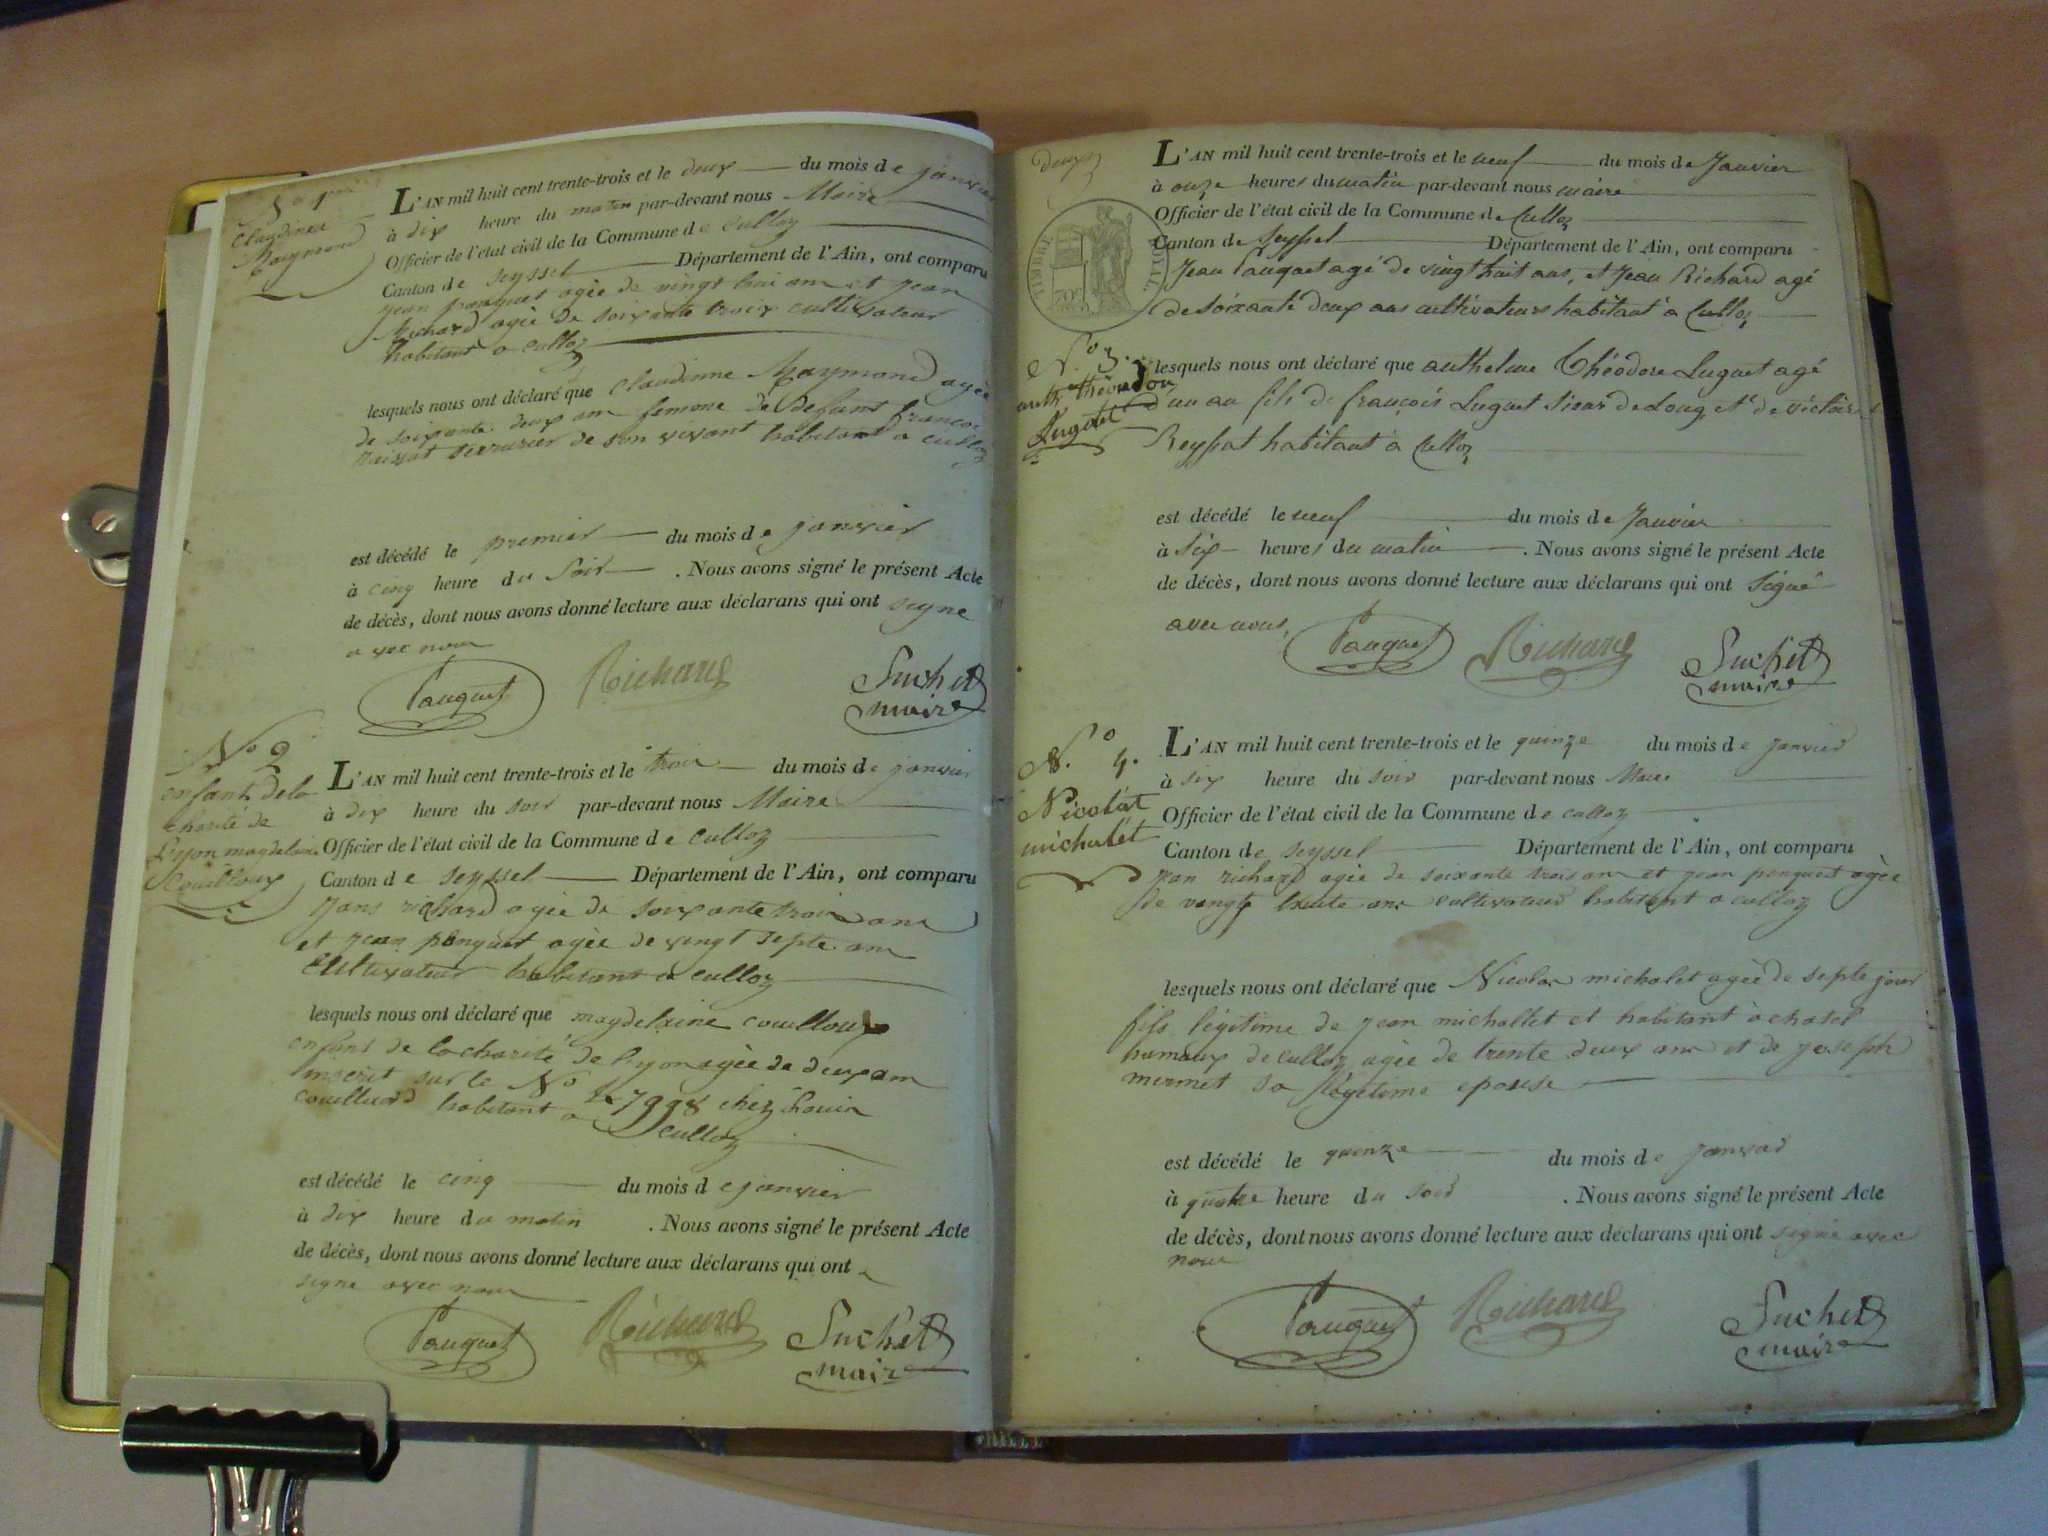 No 1
Claudine
Raymond
L'AN mil huit cent trente-trois et le deux du mois de janvier
à dix heure du matin par-devant nous Maire
Officier de l'état civil de la Commune de culloz
Canton de seyssel Département de l'Ain, ont comparu
jean pauquet agée de vingt huit ans et jean
Richard agée de soixante trois cultivateur
habitant a culloz
lesquels nous ont déclaré que claudinne Raymond agée
de soixante deux an femme de defunt francois
de son vivant habitant a culloz
est décédé le premier du mois de janvier
à cinq heure du Soir . Nous avons signé le présent Acte
de décès, dont nous avons donné lecture aux déclarans qui ont signe
avec nous
Pauquet Richard Suchet
maire
No 2
enfant de la
charité de
Lyon magdelaine
Couilloux
L'AN mil huit cent trente-trois et le trois du mois de janvier
à dix heure du soir par-devant nous Maire
Officier de l'état civil de la Commune de culloz
Canton de seyssel Département de l'Ain, ont comparu
richard agée de soixante trois ans
et jean pouquet agée de vingt septe an
cultivateur habitant a culloz
lesquels nous ont déclaré que magdelaine couilloux
enfant de la charité de lyon agée de deux an
inscrit sur le No 7998 chez
habitant a culloz
est décédé le cinq du mois de janvier
à dix heure du matin . Nous avons signé le présent Acte
de décès, dont nous avons donné lecture aux déclarans qui ont
signe avec nous
Pauquet Richard Suchet
maire
deux
L'AN mil huit cent trente-trois et le neuf du mois de Janvier
à onze heures du matin par-devant nous maire
Officier de l'état civil de la Commune de Culloz
Canton de Seyssel Département de l'Ain, ont comparu
TIMBRE ROYAL
Jean Pauquet agé de vingt huit ans, et Jean Richard agé
de soixante deux ans cultivateurs habitant à Culloz
N.o 3.
anth. théodore
Luguet
lesquels nous ont déclaré que anthelme Théodore Luguet agé
d'un an fils de françois Luguet
Reyssat habitant à Culloz
est décédé le neuf du mois de Janvier
à six heures du matin . Nous avons signé le présent Acte
de décès, dont nous avons donné lecture aux déclarans qui ont signé
avec nous,
Pauquet Richard Suchet
maire
N.o 4.
Nicolat
michalet
L'AN mil huit cent trente-trois et le quinze du mois de janvier
à six heure du soir par-devant nous Maire
Officier de l'état civil de la Commune de culloz
Canton de seyssel Département de l'Ain, ont comparu
jean richard agée de soixante trois an et jean pouquet agée
de vengt huite ans cultivateur habitant a culloz
lesquels nous ont déclaré que Nicolas michalet agée de septe jour
fils légitime de jean michallet et habitant à chatel
hamaux de culloz agée de trente deux ans et de joseph
mermet sa légitime epouse
est décédé le quinze du mois de janvier
à quatre heure du soir . Nous avons signé le présent Acte
de décès, dont nous avons donné lecture aux déclarans qui ont signé avec
nous
Pauquet Richard Suchet
maire